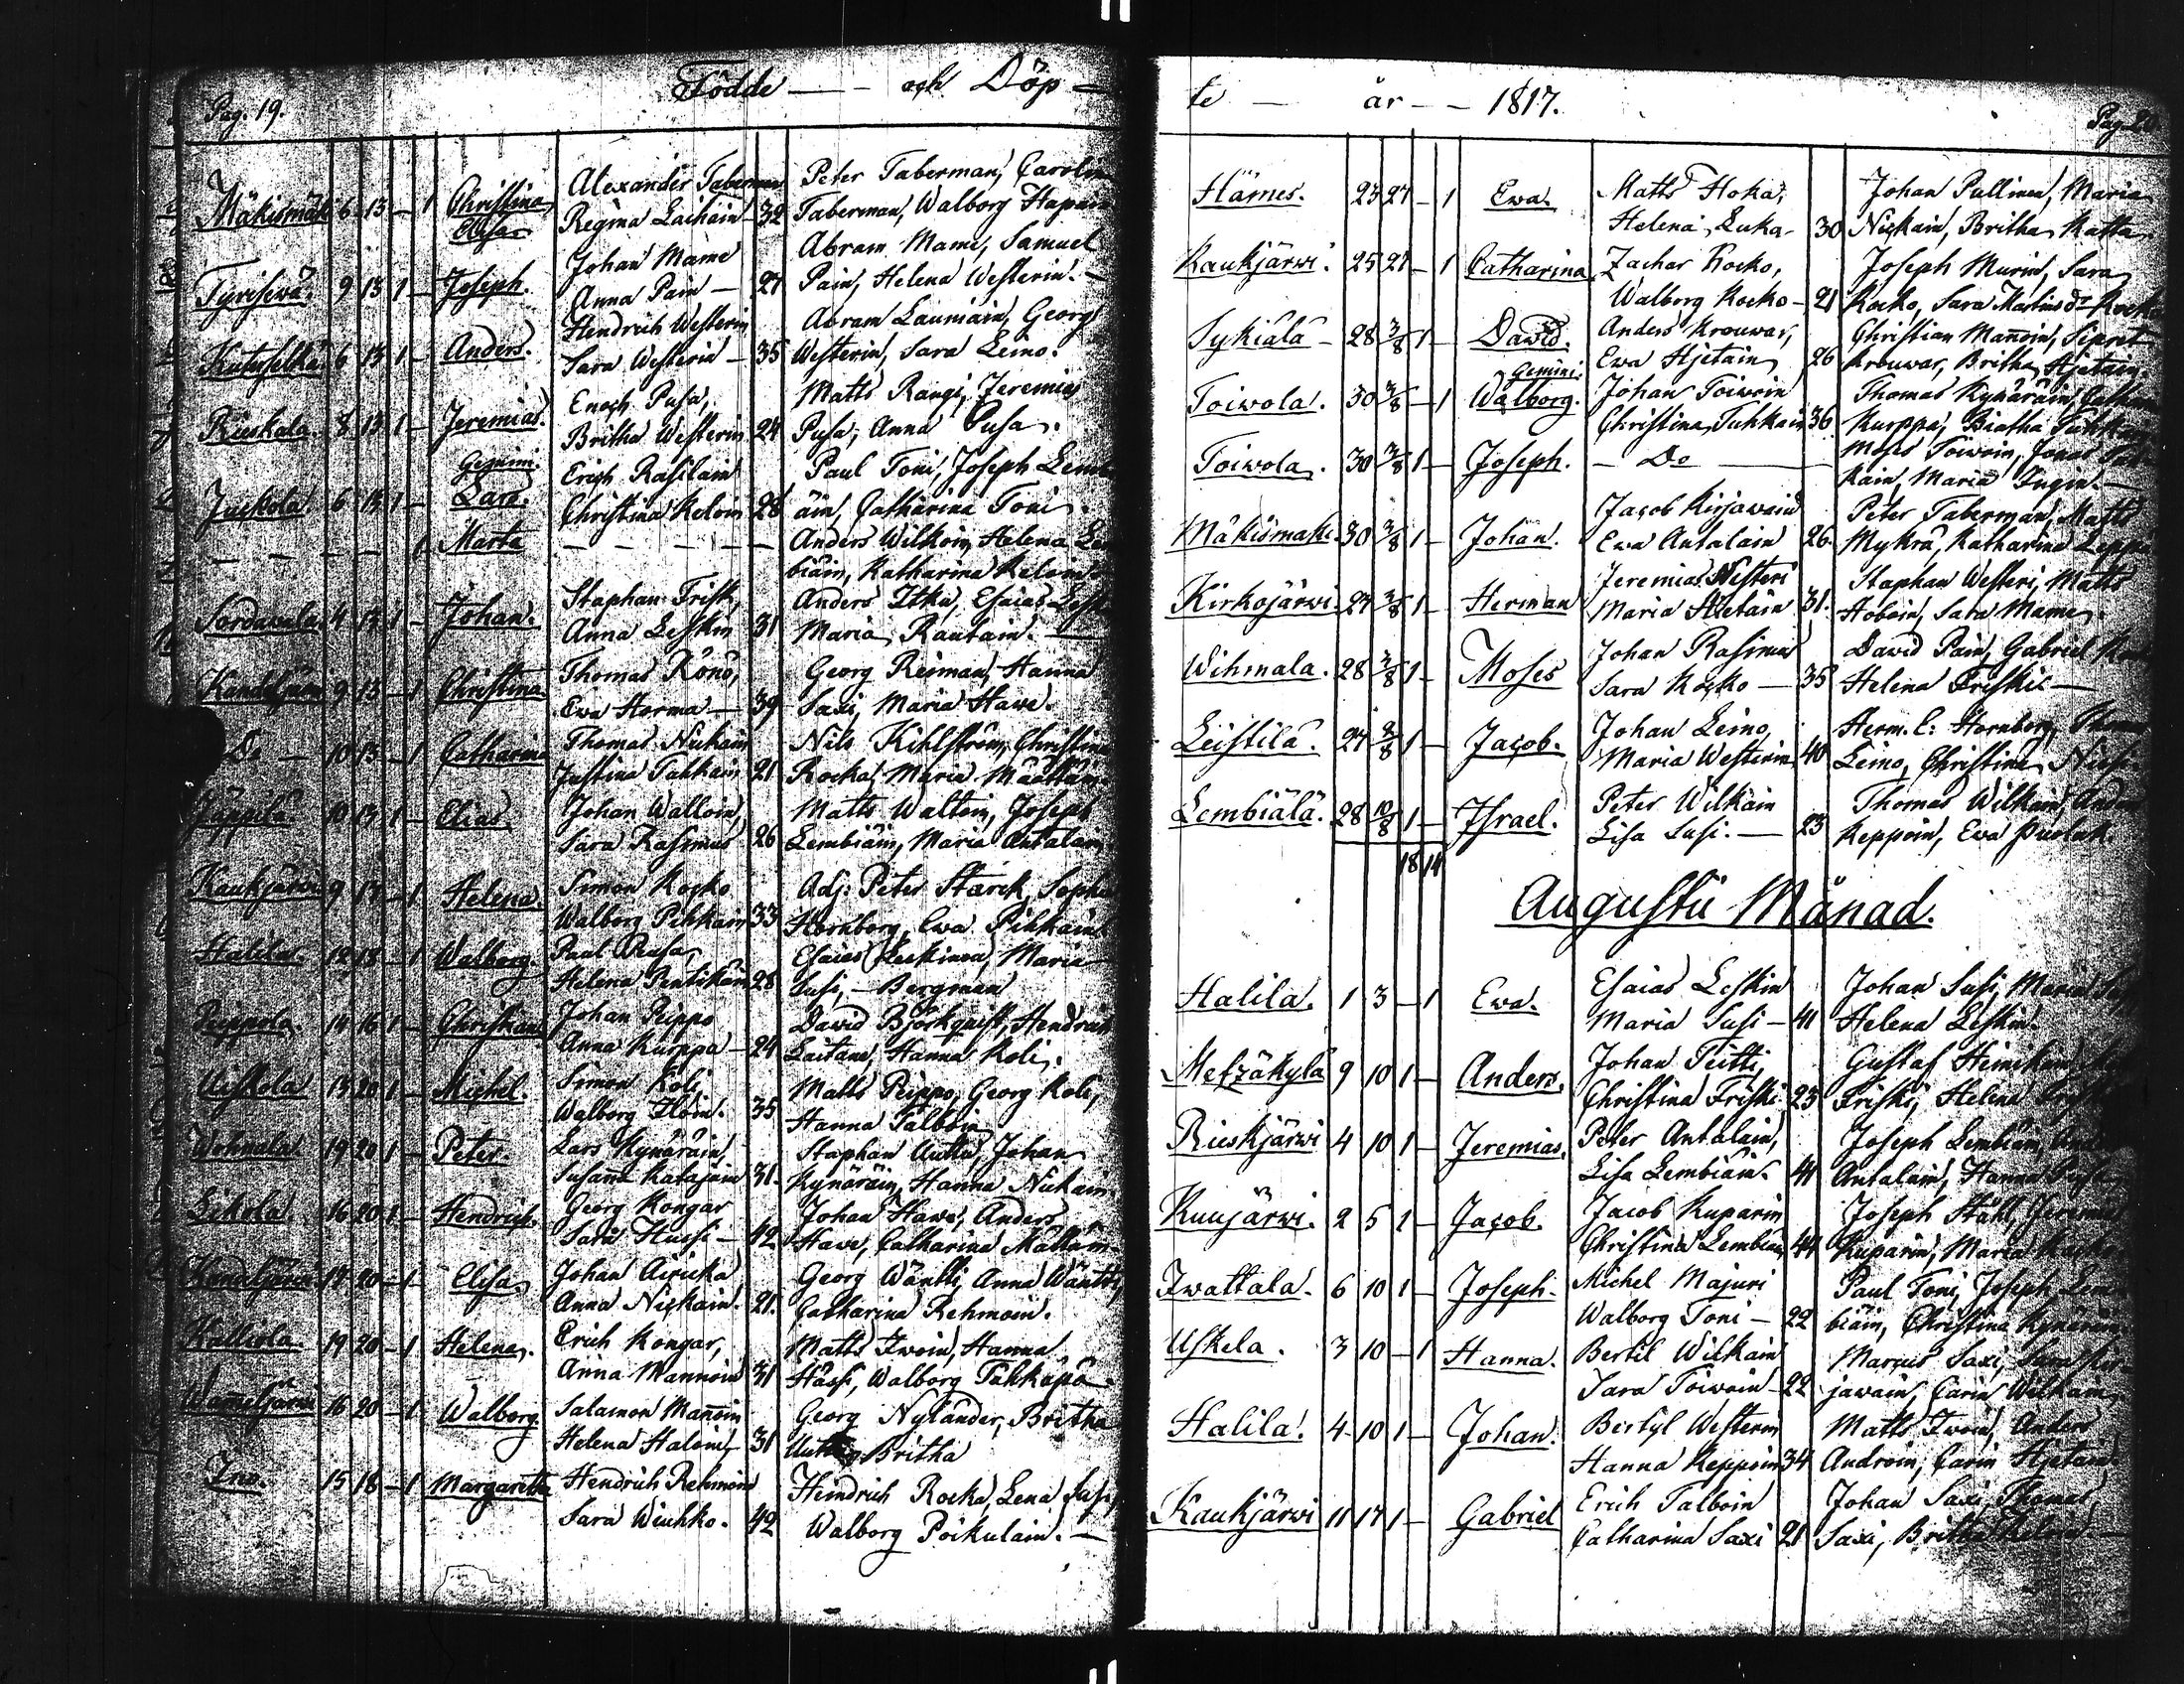 Pag. 19.
Födde — och Döp —
Mäkismäk 6 13 — 1 Christina Elisa
Alexander Taberman
Regina Laihain 32
Peter Taberman, Carolin
Taberman, Walborg Hapain
Tyrisewä. 9 13 1 — Joseph.
Johan Mame
Anna Pain — 27
Abram Mame, Samuel
Pain, Helena Westerin. —
Kuturselkä. 6 13 1 — Anders.
Hendrich Westerin
Sara Westerin — 35
Abram Launiain, Georg
Westerin, Sara Leino.
Riuskala. 8 13 1 — Jeremias.
Enoch Pusa,
Britha Westerin 24
Matts Rangi, Jeremias
Pusa, Anna Pusa.
Gemini.
Juckola. 6 13 1 — Lars.
Erich Rasilain
Christina Keloin 28
Paul Toni, Joseph Lemb
äin, Catharina Toni.
— — — — 1 Marta
— — — —
Anders Wilkoin, Helena Lem
biäin, Katharina Keloin
Sordavala. 4 13 1 — Johan.
Staphan Frisk,
Anna Leskin 31
Anders Itka, Esaias Lesk
Maria Rautain. —
Kandeljärvi 9 13 — 1 Christina
Thomas Rönö,
Ewa Horma — 39
Georg Reiman, Hanna
Saxi, Maria Hawe.
Do — 10 13 — 1 Catharina
Thomas Nickain
Justina Tahkain 21
Nils Kihlström, Christina
Rocka, Maria Määttäin
Jäppilä 10 13 1 — Elias
Johan Walloin,
Sara Rasimus 26
Matts Waltoin, Joseph
Lembiäin, Maria Antalain
Kaukjärwi 9 17 — 1 Helena.
Simon Kocko
Walborg Pihkain 33
Adj: Peter Starck, Sopha
Hornborg, Ewa Pihkain
Halila. 12 13 — 1 Walborg.
Paul Peusa
Helena Pentikäin 28
Esaias Heskinen, Maria
Susi, — Bergman
Peippola. 14 16 1 — Christian
Johan Peippo
Anna Kurppa — 24
David Björkquist, Hendrich
Laitane, Hanna Koli.
Uiskola 13 20 1 — Michel.
Simon Koli
Walborg Iloin. 35
Matts Peippo, Georg Koli,
Hanna Talboin
Wohnala. 19 20 1 — Peter.
Lars Kynäräin,
Susanna Katajain 31.
Staphan Autka, Johan
Kynäräin, Hanna Nickain.
Likola 16 20 1 — Hendrich.
Georg Kongar
Sara Hussi — 42
Johan Hawe, Anders
Have, Catharina Mättäin
Kandeljärvi 17 20 — 1 Elisa
Johan Airicka
Anna Nickain. 21.
Georg Wäntti, Anna Wäntti,
Catharina Rehmoin.
Kalliola. 19 20 — 1 Helena.
Erich Kongar,
Anna Mannoin 31
Matts Iwoin, Hanna
Hässi, Walborg Tahkäpä
Wameljärvi 16 20 — 1 Walborg.
Salamon Mannoin
Helena Haloin — 31
Georg Nylander, Britha
Britha
Ino. 15 18 — 1 Margaretha
Hendrich Rehmoin
Sara Wiuhko. 42
Heindrich Rocka, Lena Susi,
Walborg Poikulain. —
te — år — — 1817.
Pag. 20.
Hämes. 23 27 — 1 Ewa.
Matts Hoka,
Helena Luka — 30
Johan Pullinen, Maria
Nickain, Britha Katta
Kaukjärwi. 25 27 — 1 Catharina
Zachar Kocko,
Walborg Kocko — 21
Joseph Murin, Sara
Kocko, Sara Martins dr Kocko
Sykiälä — 28 3/8 1 — David.
Anders Krouwar,
Ewa Hjetain 26
Christian Mannoin, Sipret
Krouwar, Britha Hjetain.
Gemini.
Toiwola. 30 3/8 — 1 Walborg.
Johan Toiwoin
Christina Tuhkain 36
Thomas Kynäräin, Cathar
Kurppa, Biatha Tuhkain
Toiwola. 30 3/8 1 — Joseph.
— Do —
Moses Toiwoin, Jonas
kain, Maria Ingin. —
Mäkismaki. 30 3/8 1 — Johan.
Jacob Kirjawain
Ewa Antalain 26.
Peter Taberman, Matts
Mykrä, Katharina Leppä
Kirkojärwi 27 3/8 1 — Herman
Jeremias Westeri
Maria Hietain 31.
Staphan Westeri, Matts
Hoboin, Sara Mame.
Wihmala. 28 3/8 1 — Moses
Johan Rasimus
Sara Kocko — 35
David Pain, Gabriel
Helena Friskie —
Leistilä. 27 3/8 1 — Jacob.
Johan Leino,
Maria Westerin 40
Herm. C: Hornborg, Thomas
Leino, Christina
Lembiälä. 28 10/8 1 — Israel.
Peter Wilkain
Lisa Susi. — 23
Thomas Wilkain, Anders
Keppoin, Ewa Puolak.
18 14
Augustii Månad.
Halila. 1 3 — 1 Ewa.
Esaias Leskin
Maria Susi — 41
Johan Susi, Maria
Helena Leskin.
Metzäkylä 9 10 1 — Anders.
Johan Teitti,
Christina Friski 23
Gustaf Heinikain,
Friski, Helena
Riuskjärwi 4 10 1 — Jeremias.
Peter Antalain,
Lisa Lembiäin. 41
Joseph Lembiäin,
Antalain, Hanna
Kuujärwi. 2 5 1 — Jacob.
Jacob Kuparin
Christina Lembiäin 44
Joseph Ståhl, Jeremias
Kuparin, Maria
Iwattala. 6 10 1 — Joseph.
Michel Majuri
Walborg Toni — 22
Paul Toni, Joseph Lem
biäin, Christina Kynäräin.
Uskela. 3 10 — 1 Hanna.
Bertil Wilkain
Sara Toiwoin — 22
Marcus Saxi, Sara Kir
jawain, Carin Wilkain,
Halila. 4 10 1 — Johan.
Bertyl Westerin
Hanna Keppoin 34
Matts Iwoin, Anders
Androin, Carin Hjetain.
Kaukjärwi 11 17 1 — Gabriel
Erich Talboin
Catharina Saxi 21
Johan Saxi, Thomas
Saxi, Britha —